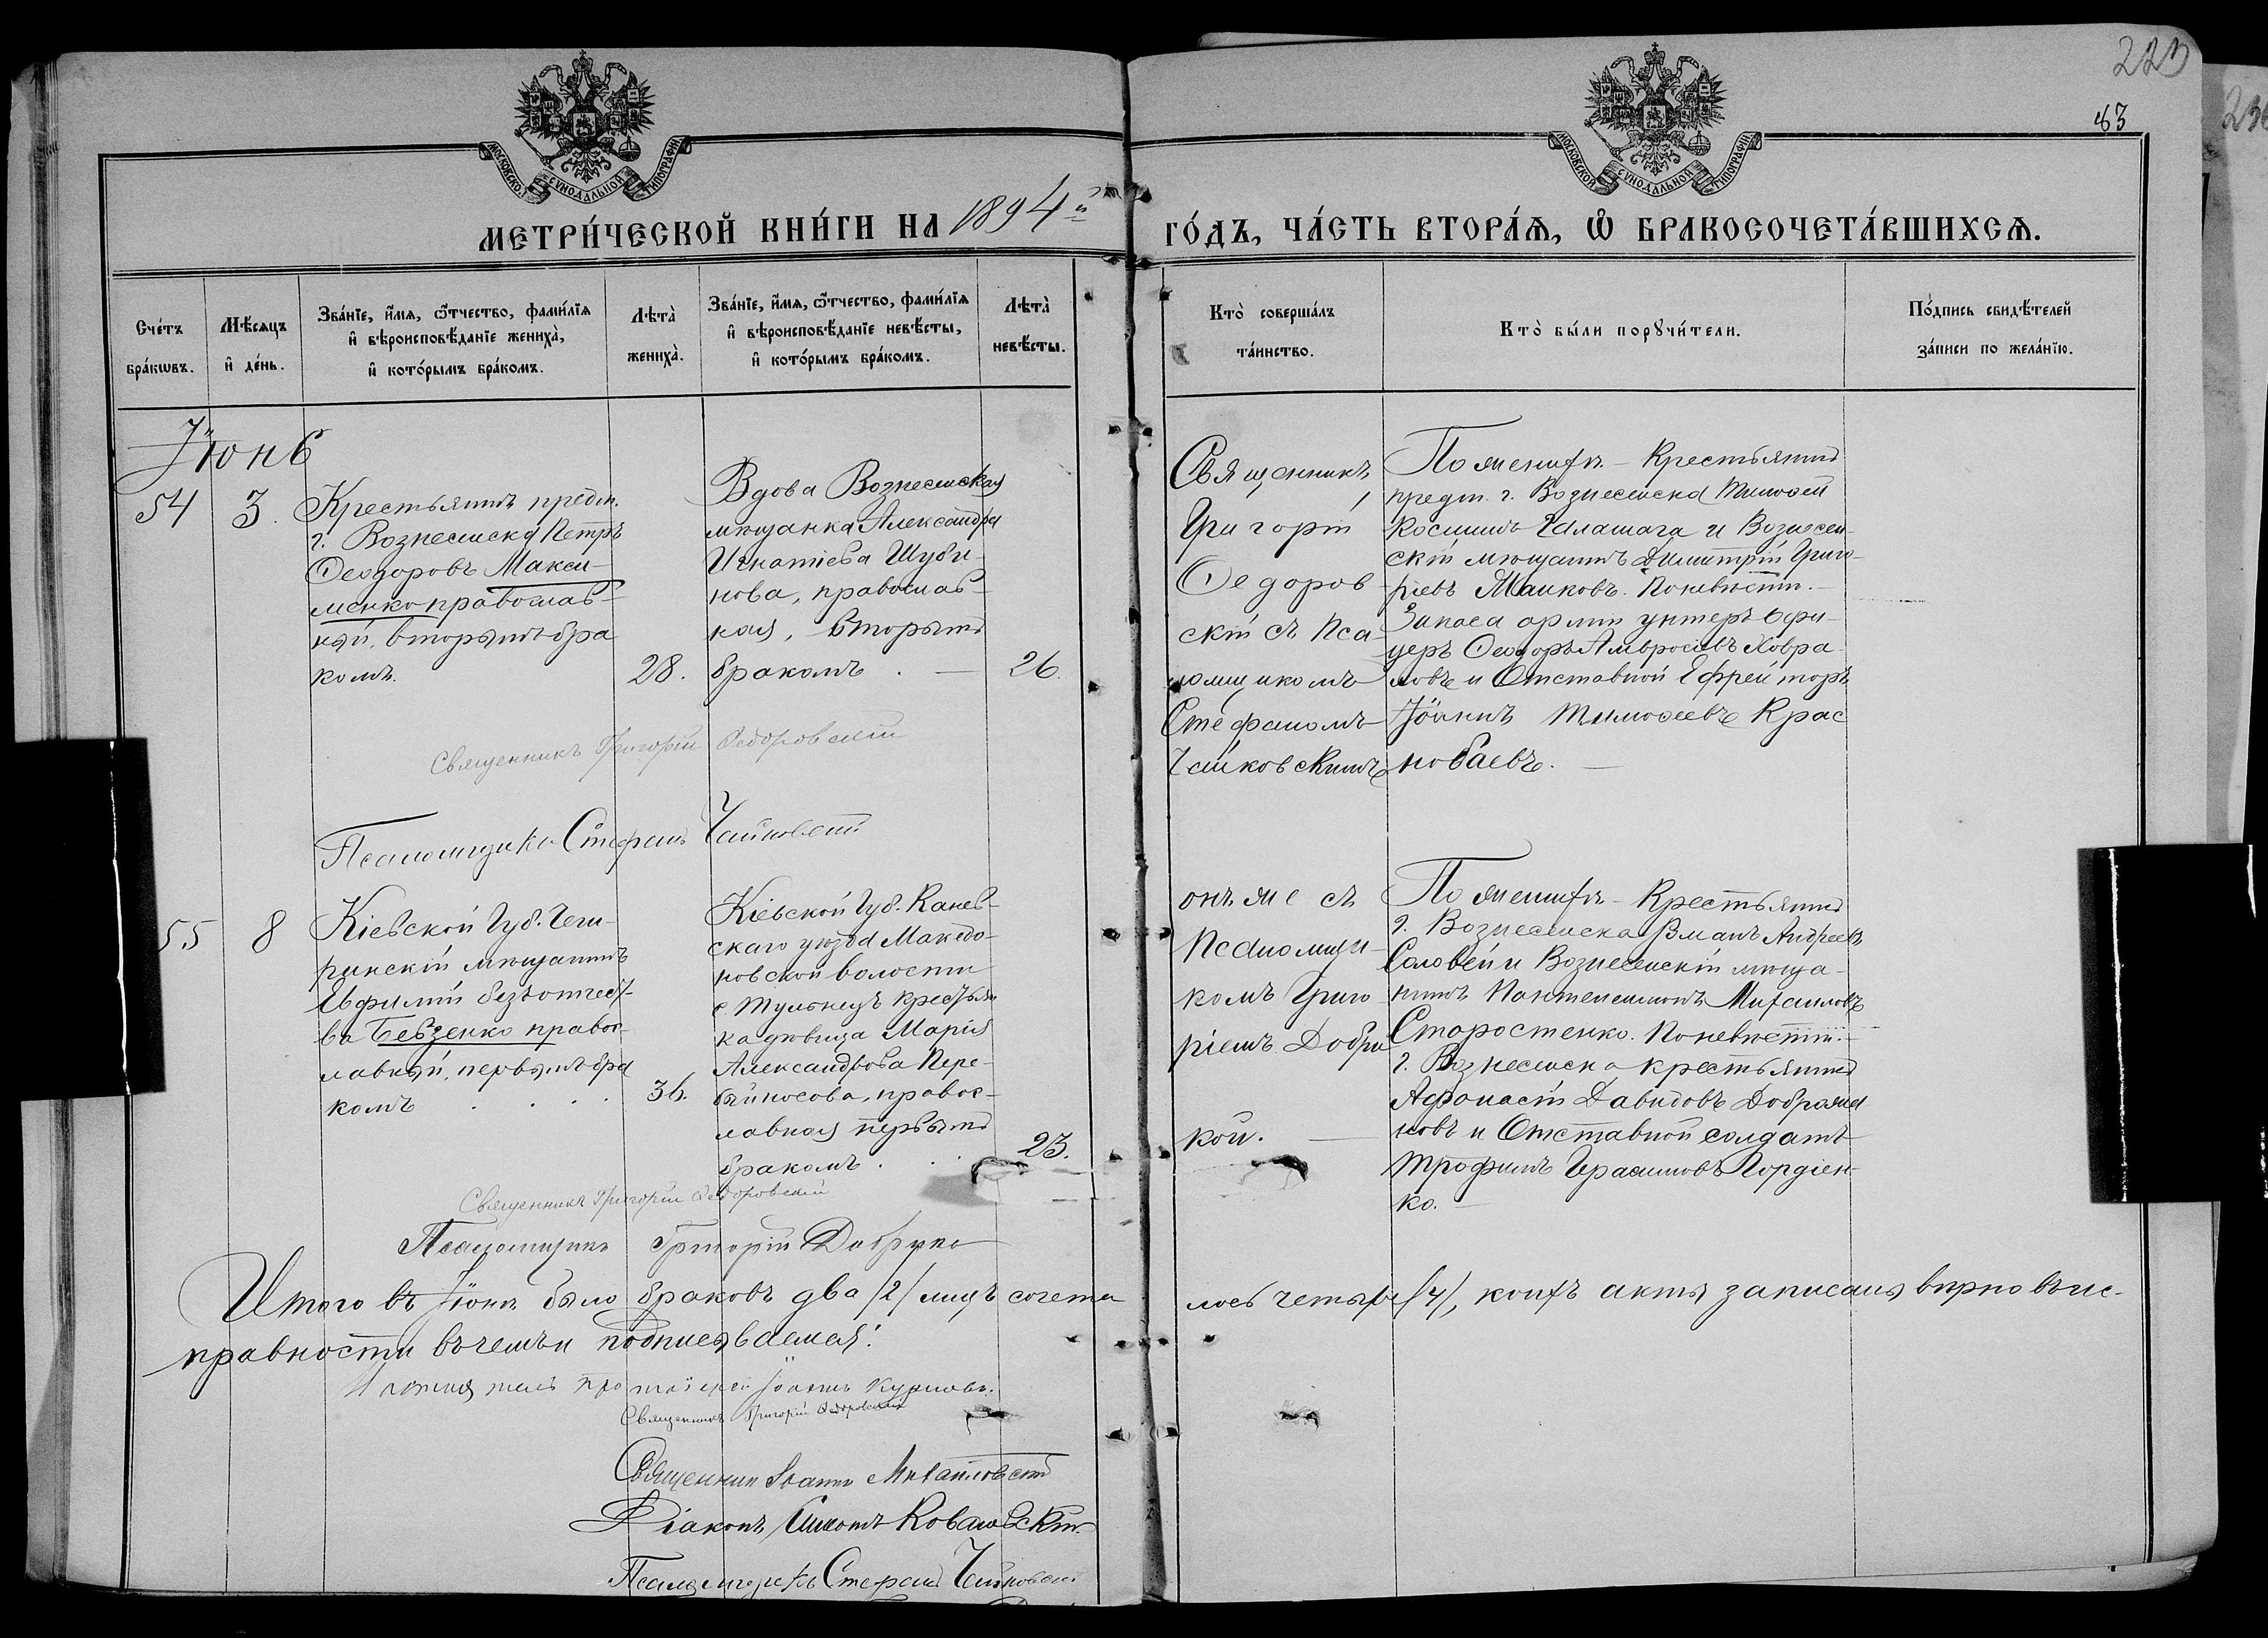 223
83
МОСКОВСКОЙ СѴНОДАЛЬНОЙ ТИПОГРАФІИ
МОСКОВСКОЙ СѴНОДАЛЬНОЙ ТИПОГРАФІИ
МЕТРИ́ЧЕСКОЙ КНИ́ГИ НА 1894й
ГО́ДЪ, ЧА́СТЬ ВТОРА́Ѧ, Ѽ БРАКОСОЧЕТА́ВШИХСѦ.
Сче́тъ бра́кѡвъ.
Мѣ́сяцъ и҆ де́нь.
Зва́нїе, и҆́мя, ѻ҆́тчество, фами́лїя
и҆ вѣроисповѣ́данїе жениха̀,
и҆ кото́рымъ бра́комъ.
Лѣта̀ жениха̀.
Зва́нїе, и҆́мя, ѻ҆́тчество, фами́лїя
и҆ вѣроисповѣ́данїе невѣ́сты,
и҆ кото́рымъ бра́комъ.
Лѣта̀ невѣ́сты.
Кто̀ соверша́лъ та́инство.
Кто̀ бы́ли порꙋчи́тели.
По́дпись свидѣ́телей за́писи по жела́нїю.
Іюнь
54
3.
Крестьянинъ предм.
г. Вознесенска Петръ
Ѳеодоровъ Макси-
менко православ-
ный, вторымъ бра
комъ.
28.
Вдова Вознесенская
мѣщанка Александра
Игнатіева Шуби-
нова, православ-
ная, вторымъ
бракомъ. —
26.
Священникъ
Григорій
Ѳедоров-
скій съ Пса-
ломщикомъ
Стефаномъ
Чайковскимъ
По женихѣ - Крестьянинъ
предм. г. Вознесенска Тимоѳей
Косминъ Галашага и Вознесен-
скій мѣщанинъ Димитрій Григо-
ріевъ Маиковъ. По невѣстѣ. -
Запаса арміи унтеръ офи-
церъ Ѳеодоръ Амвросіевъ Ховра-
ловъ и Отставной Ефрейторъ
Іоаннъ Тимоѳеевъ Крас
нобаевъ. —
Священникъ Григорій Ѳедоровскій
Псаломщикъ Стефанъ Чайковскій
55
8
Кіевской Губ. Чеги-
ринскій мѣщанинъ
Евфимій безъ отчест-
ва Бевзенко правос-
лавный, первымъ бра
комъ . . . .
36.
Кіевской Губ. Канев-
скаго уѣзда Македо-
новской волости
с. Тулынецъ крестьян
ка дѣвица Марія
Александрова Пере-
бійносова, правос-
лавная первымъ
бракомъ. . .
23.
онъ же съ
Псаломщи-
комъ Григо-
ріемъ Добри
кой. —
По женихѣ - Крестьянинъ
г. Вознесенска Романъ Андреевъ
Соловей и Вознесенскій мѣща-
нинъ Пантелеимонъ Михаиловъ
Старостенко. По невѣстѣ. -
г. Вознесенска крестьянинъ
Аѳанасій Давидовъ Добража
новъ и Отставной солдатъ
Трофимъ Герасимовъ Гордіен-
ко. —
Священникъ Григорій Ѳедоровскій
Псаломщикъ Григорій Добрика
Итого въ Іюнѣ было браковъ два /2/ лицъ сочета
лось четыре /4/, коихъ акты записаны вѣрно въ ис-
правности въ чемъ и подписываемся:
Настоятель протоіерей Іоаннъ
Священникъ Григорій Ѳедоровскій
Священникъ Іоаннъ Михайловскій
Діаконъ Симонъ Ковалевскій
Псаломщикъ Стефанъ Чайковскій